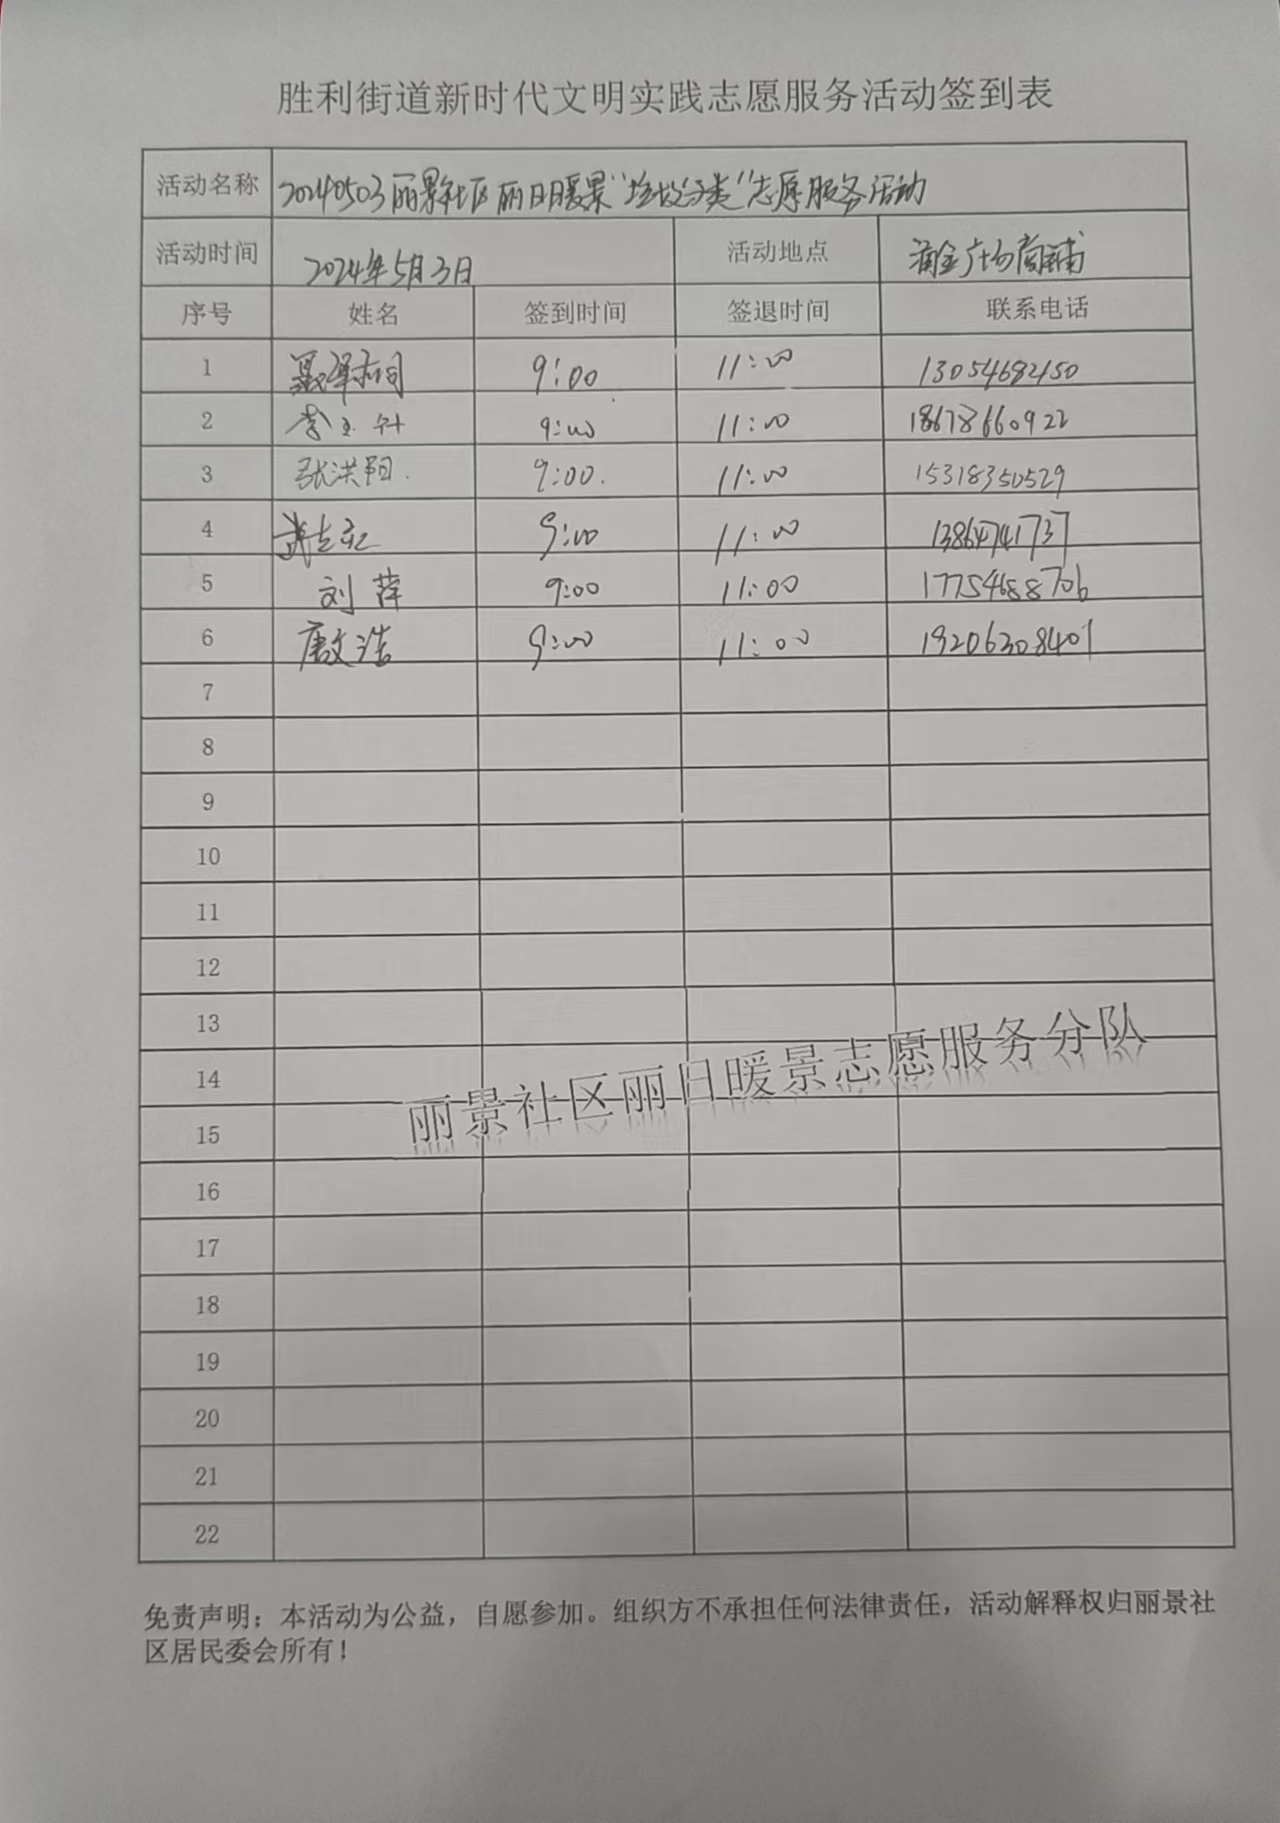 胜利街道新时代文明实践志愿服务活动签到表
活动名称 20240503丽景社区丽日暖景“垃圾分类”志愿服务活动
活动时间 2024年5月3日 活动地点 广场商铺
序号 姓名 签到时间 签退时间 联系电话
1 9:00 11:00 13054682450
2 李玉 9:00 11:00 18678660922
3 张洪阳. 9:00. 11:00 15318350529
4 武 9:00 11:00 13864741737
5 刘萍 9:00 11:00 17754688706
6 唐文浩 9:00 11:00 19206308401
7
8
9
10
11
12
13
14
15
16
17
18
19
20
21
22
丽景社区丽日暖景志愿服务分队
免责声明：本活动为公益，自愿参加。组织方不承担任何法律责任，活动解释权归丽景社
区居民委会所有！